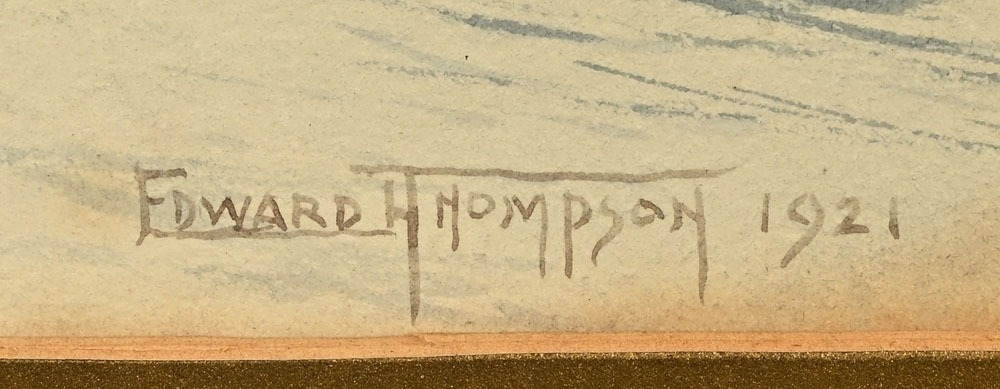 EDWARD H THOMPSON 1921